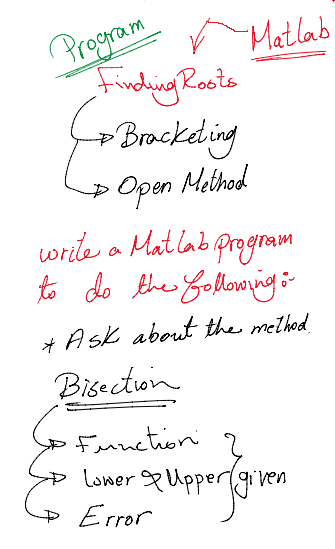 Program
Matlab
Finding Roots
Bracketing
Open Method
write a Matlab program
to do the following:-
* Ask about the method.
Bisection
Function
Lower & Upper } given
Error